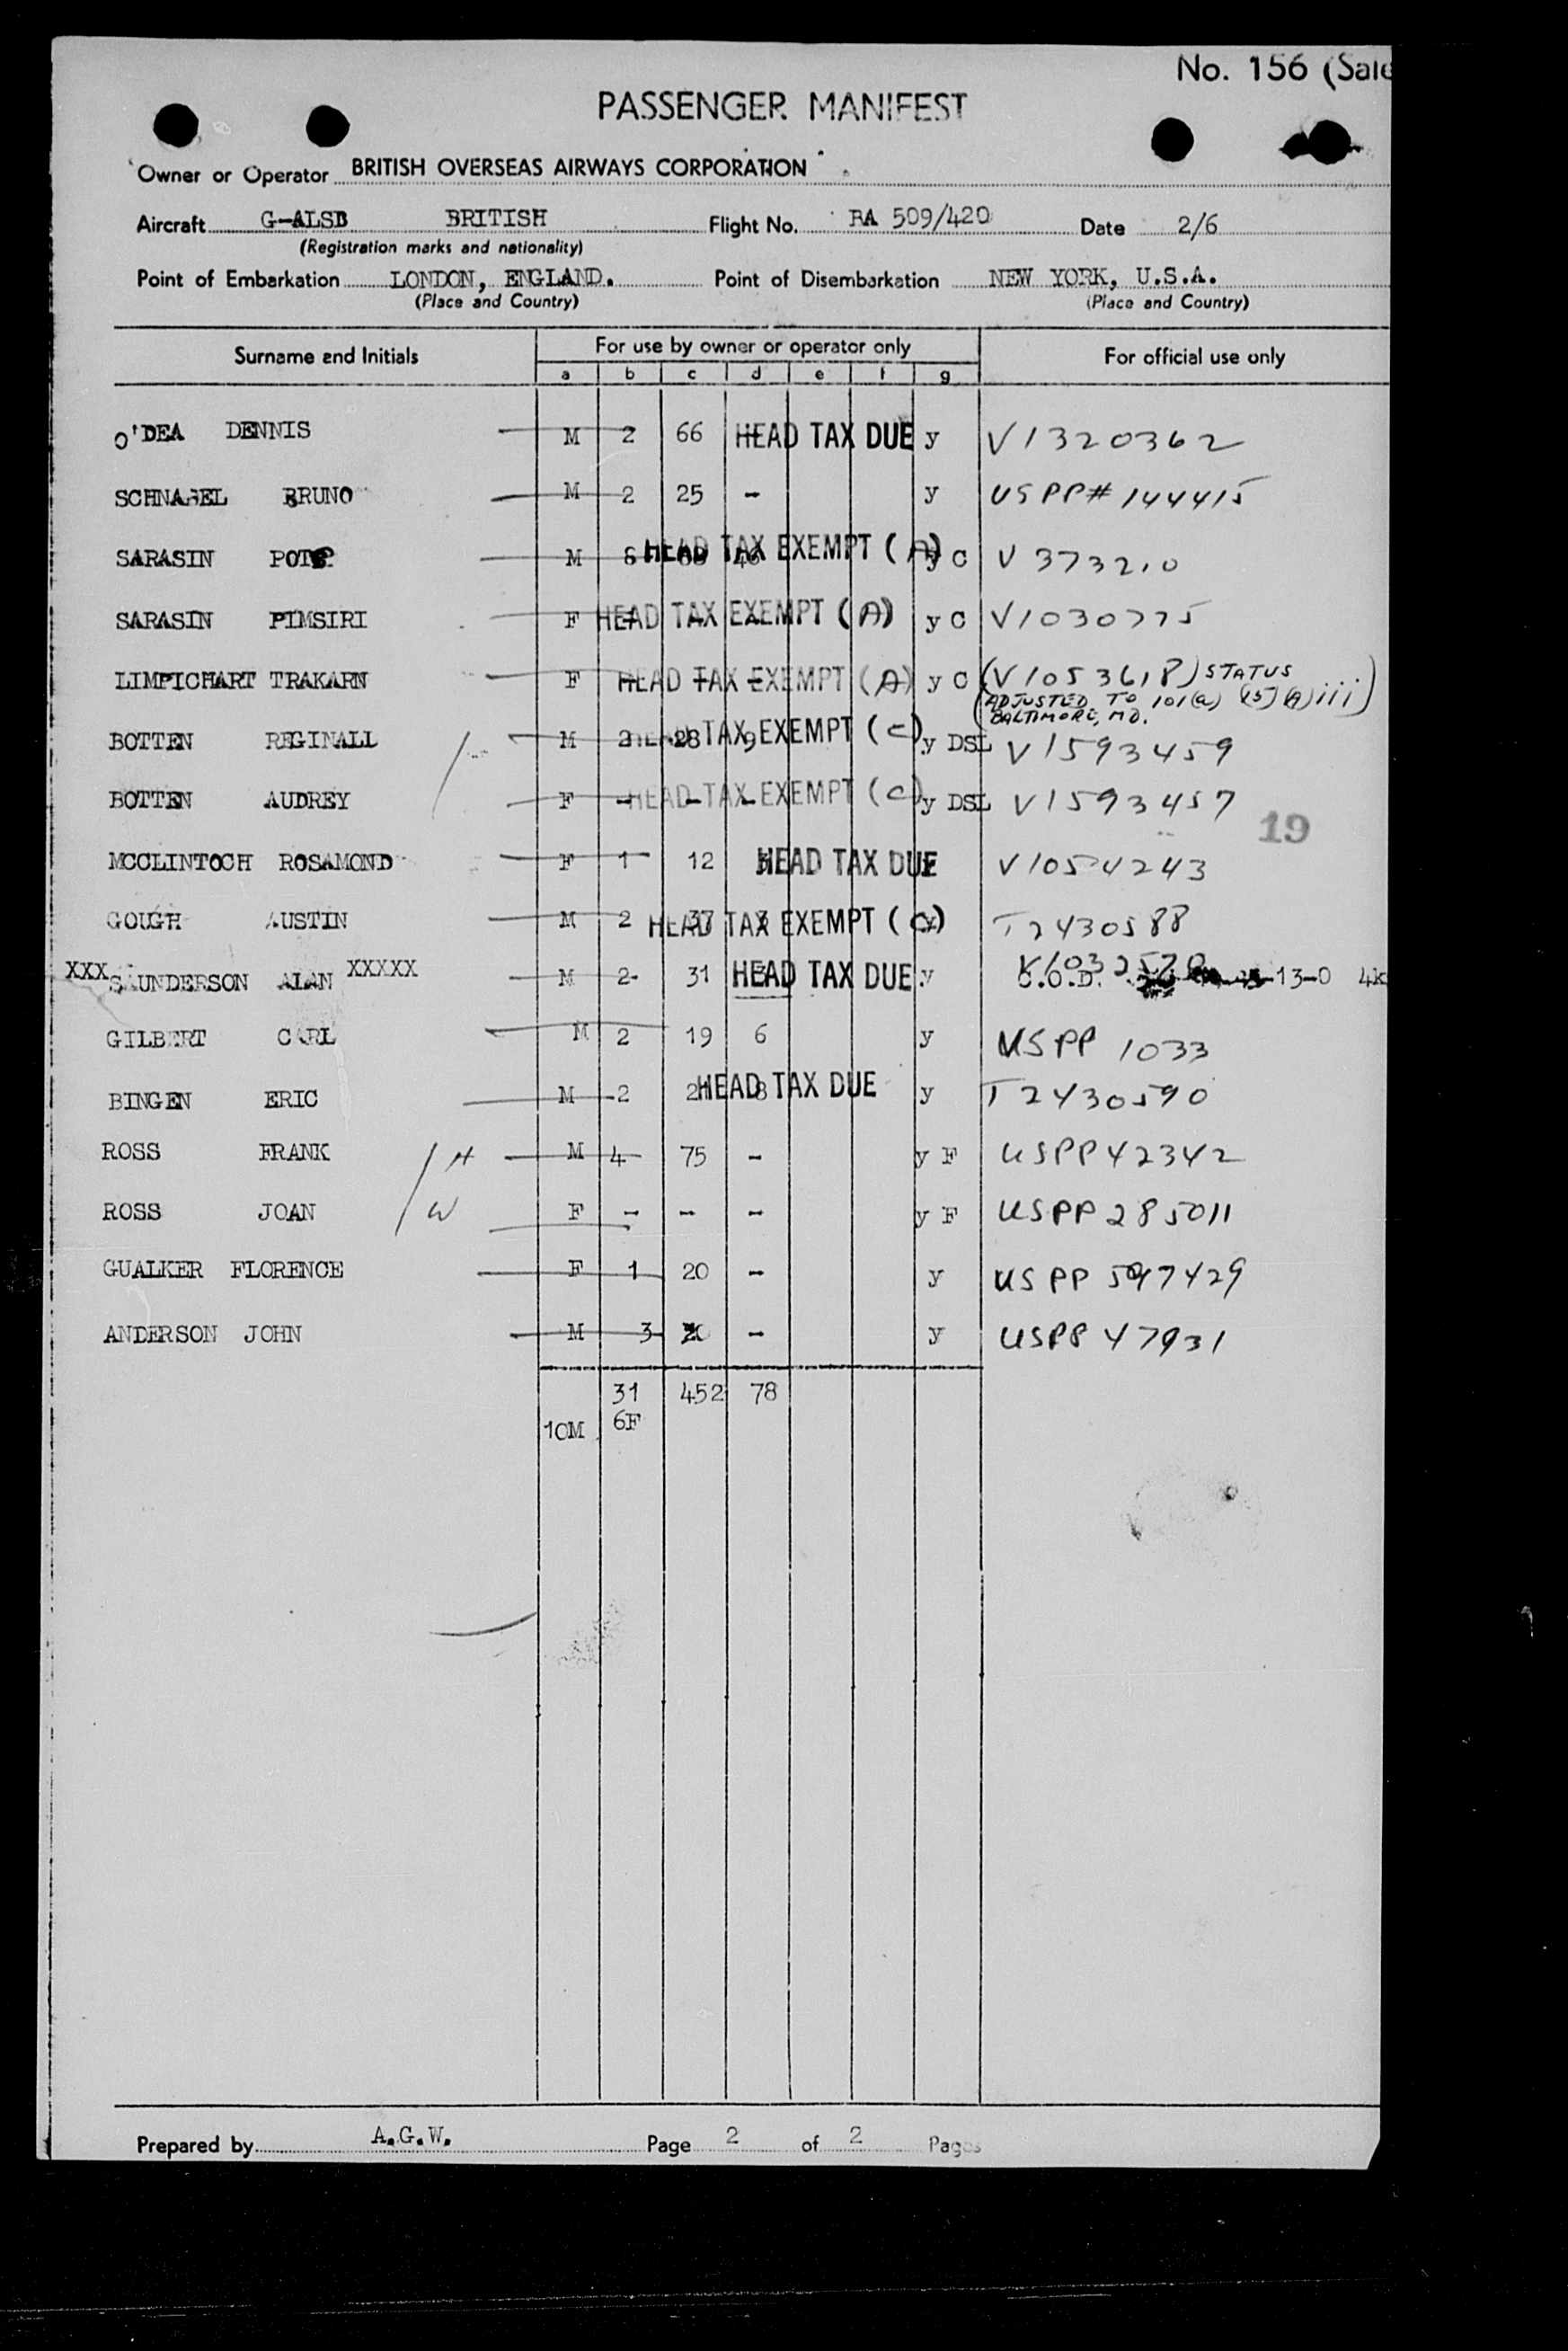 No. 156 (Sale
PASSENGER MANIFEST
Owner or Operator BRITISH OVERSEAS AIRWAYS CORPORATION
Aircraft G-ALSB BRITISH Flight No. BA 509/420 Date 2/6
(Registration marks and nationality)
Point of Embarkation LONDON, ENGLAND. Point of Disembarkation NEW YORK, U.S.A.
(Place and Country) (Place and Country)
Surname and Initials For use by owner or operator only For official use only
a b c d e f g
O'DEA DENNIS M 2 66 - HEAD TAX DUE y V1320362
SCHNABEL BRUNO M 2 25 - y USPP# 144415
SARASIN POTE M HEAD TAX EXEMPT (A) y C V 373210
SARASIN PIMSIRI F - HEAD TAX EXEMPT (A) y C V1030775
LIMPICHART TRAKARN F - - - HEAD TAX EXEMPT (A) y C (V1053618) STATUS
ADJUSTED TO 101(a) (15)(A)iii)
BALTIMORE, MD.
BOTTEN REGINALL M 2 28 9 HEAD TAX EXEMPT (C) y DSL V1593459
BOTTEN AUDREY F - - - HEAD TAX EXEMPT (C) y DSL V1593457
19
MCCLINTOCH ROSAMOND F 1 12 HEAD TAX DUE V1054243
GOUGH AUSTIN M 2 37 HEAD TAX EXEMPT (C) y T2430588
XXX SAUNDERSON ALAN XXXXX M 2 31 HEAD TAX DUE y V1032570
C.O.D. 13-0 4k
GILBERT CARL M 2 19 6 y USPP 1033
BINGEN ERIC M 2 8 HEAD TAX DUE y T2430590
ROSS FRANK / H M 4 75 - y F USPP42342
ROSS JOAN / W F - - - y F USPP 285011
GUALKER FLORENCE F 1 20 - y USPP 597429
ANDERSON JOHN M 3 - y USPP 47931
31 452 78
10M 6F
Prepared by A.G.W. Page 2 of 2 Pages